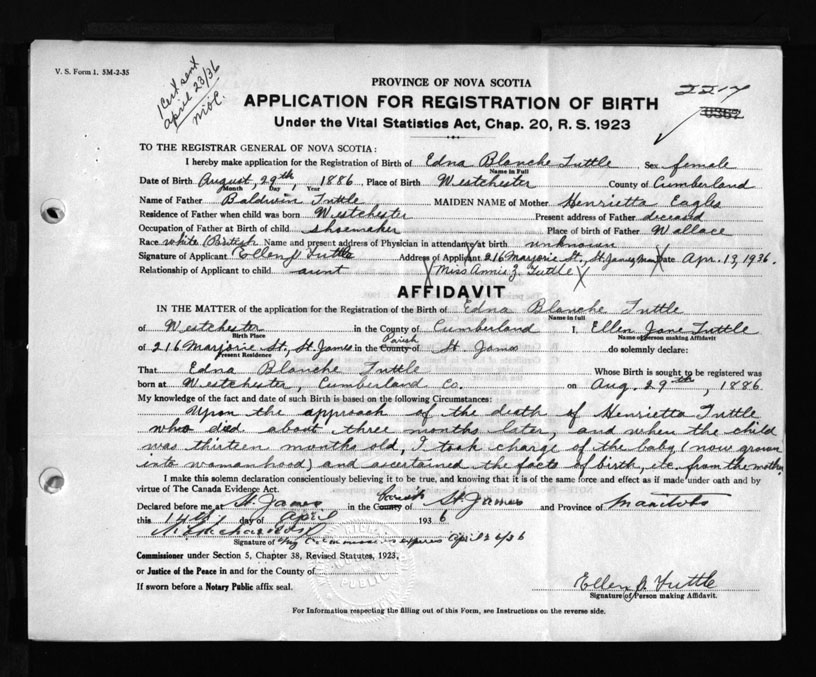 V. S. Form 1. 5M-2-35
1 Cert sent
april 23/36
PROVINCE OF NOVA SCOTIA
APPLICATION FOR REGISTRATION OF BIRTH
Under the Vital Statistics Act, Chap. 20, R. S. 1923
2217
TO THE REGISTRAR GENERAL OF NOVA SCOTIA:
I hereby make application for the Registration of Birth of Edna Blanche Tuttle Sex female
Name in Full
Date of Birth August, 29th, 1886, Place of Birth Westchester County of Cumberland
Month Day Year
Name of Father Baldwin Tuttle, MAIDEN NAME of Mother Henrietta Eagles
Residence of Father when child was born Westchester Present address of Father deceased
Occupation of Father at Birth of child shoemaker Place of birth of Father Wallace
Race white (British Name and present address of Physician in attendance at birth unknown
Signature of Applicant Ellen J Tuttle Address of Applicant 216 Marjorie St., St. James, Man Date Apr. 13, 1936.
Relationship of Applicant to child aunt Miss Annie Z. Tuttle
AFFIDAVIT
IN THE MATTER of the application for the Registration of the Birth of Edna Blanche Tuttle
Name in full
of Westchester in the County of Cumberland I, Ellen Jane Tuttle
Birth Place Name of person making Affidavit
of 216 Marjorie St., St. James in the Parish County of St. James do solemnly declare:
Present Residence
That Edna Blanche Tuttle Whose Birth is sought to be registered was
born at Westchester, Cumberland Co. on Aug. 29th, 1886.
My knowledge of the fact and date of such Birth is based on the following Circumstances:
Upon the approach of the death of Henrietta Tuttle
who died about three months later, and when the child
was thirteen months old, I took charge of the baby (now grown
into womanhood) and ascertained the facts of birth, etc. from the mother.
I make this solemn declaration conscientiously believing it to be true, and knowing that it is of the same force and effect as if made under oath and by
virtue of The Canada Evidence Act.
Declared before me at St. James in the Parish County of St. James and Province of Manitoba
this 14th day of April 1936
Signature of My Commission expires April 26/36
Commissioner under Section 5, Chapter 38, Revised Statutes, 1923,
or Justice of the Peace in and for the County of
If sworn before a Notary Public affix seal.
Ellen J. Tuttle
Signature of Person making Affidavit.
For Information respecting the filling out of this Form, see Instructions on the reverse side.